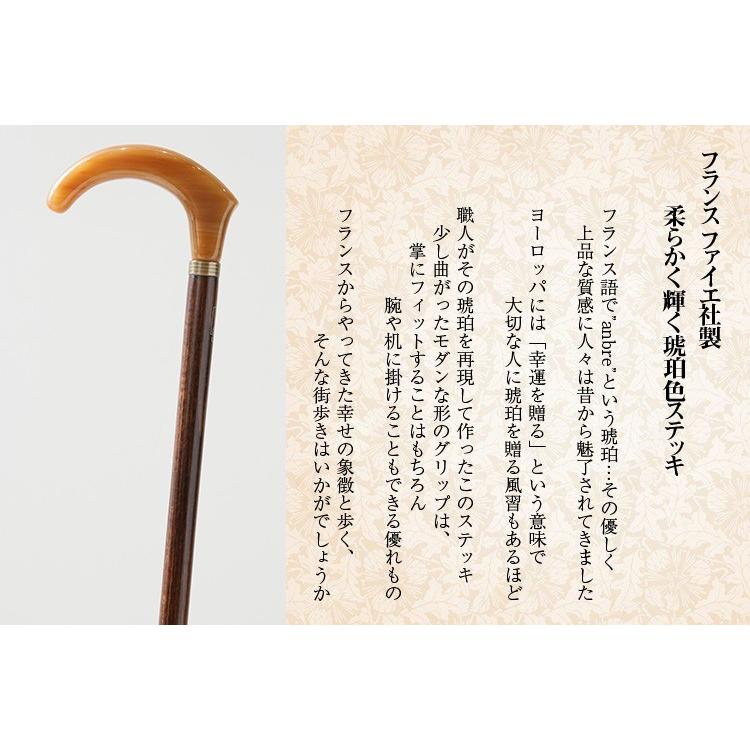 フランス ファイエ社製
柔らかく輝く琥珀色ステッキ
フランス語で"anbre"という琥珀…その優しく
上品な質感に人々は昔から魅了されてきました
ヨーロッパには「幸運を贈る」という意味で
大切な人に琥珀を贈る風習もあるほど
職人がその琥珀を再現して作ったこのステッキ
少し曲がったモダンな形のグリップは、
掌にフィットすることはもちろん
腕や机に掛けることもできる優れもの
フランスからやってきた幸せの象徴と歩く、
そんな街歩きはいかがでしょうか